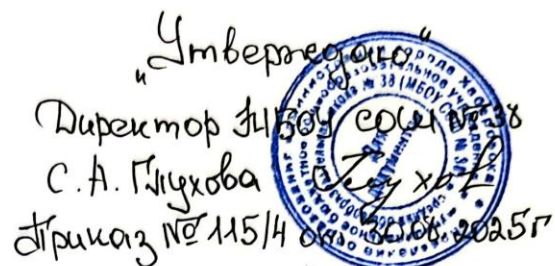 „Утверждаю"
Директор МБОУ СОШ № 38
С.А. Глухова
Приказ № 115/4 от 30.08.2025г